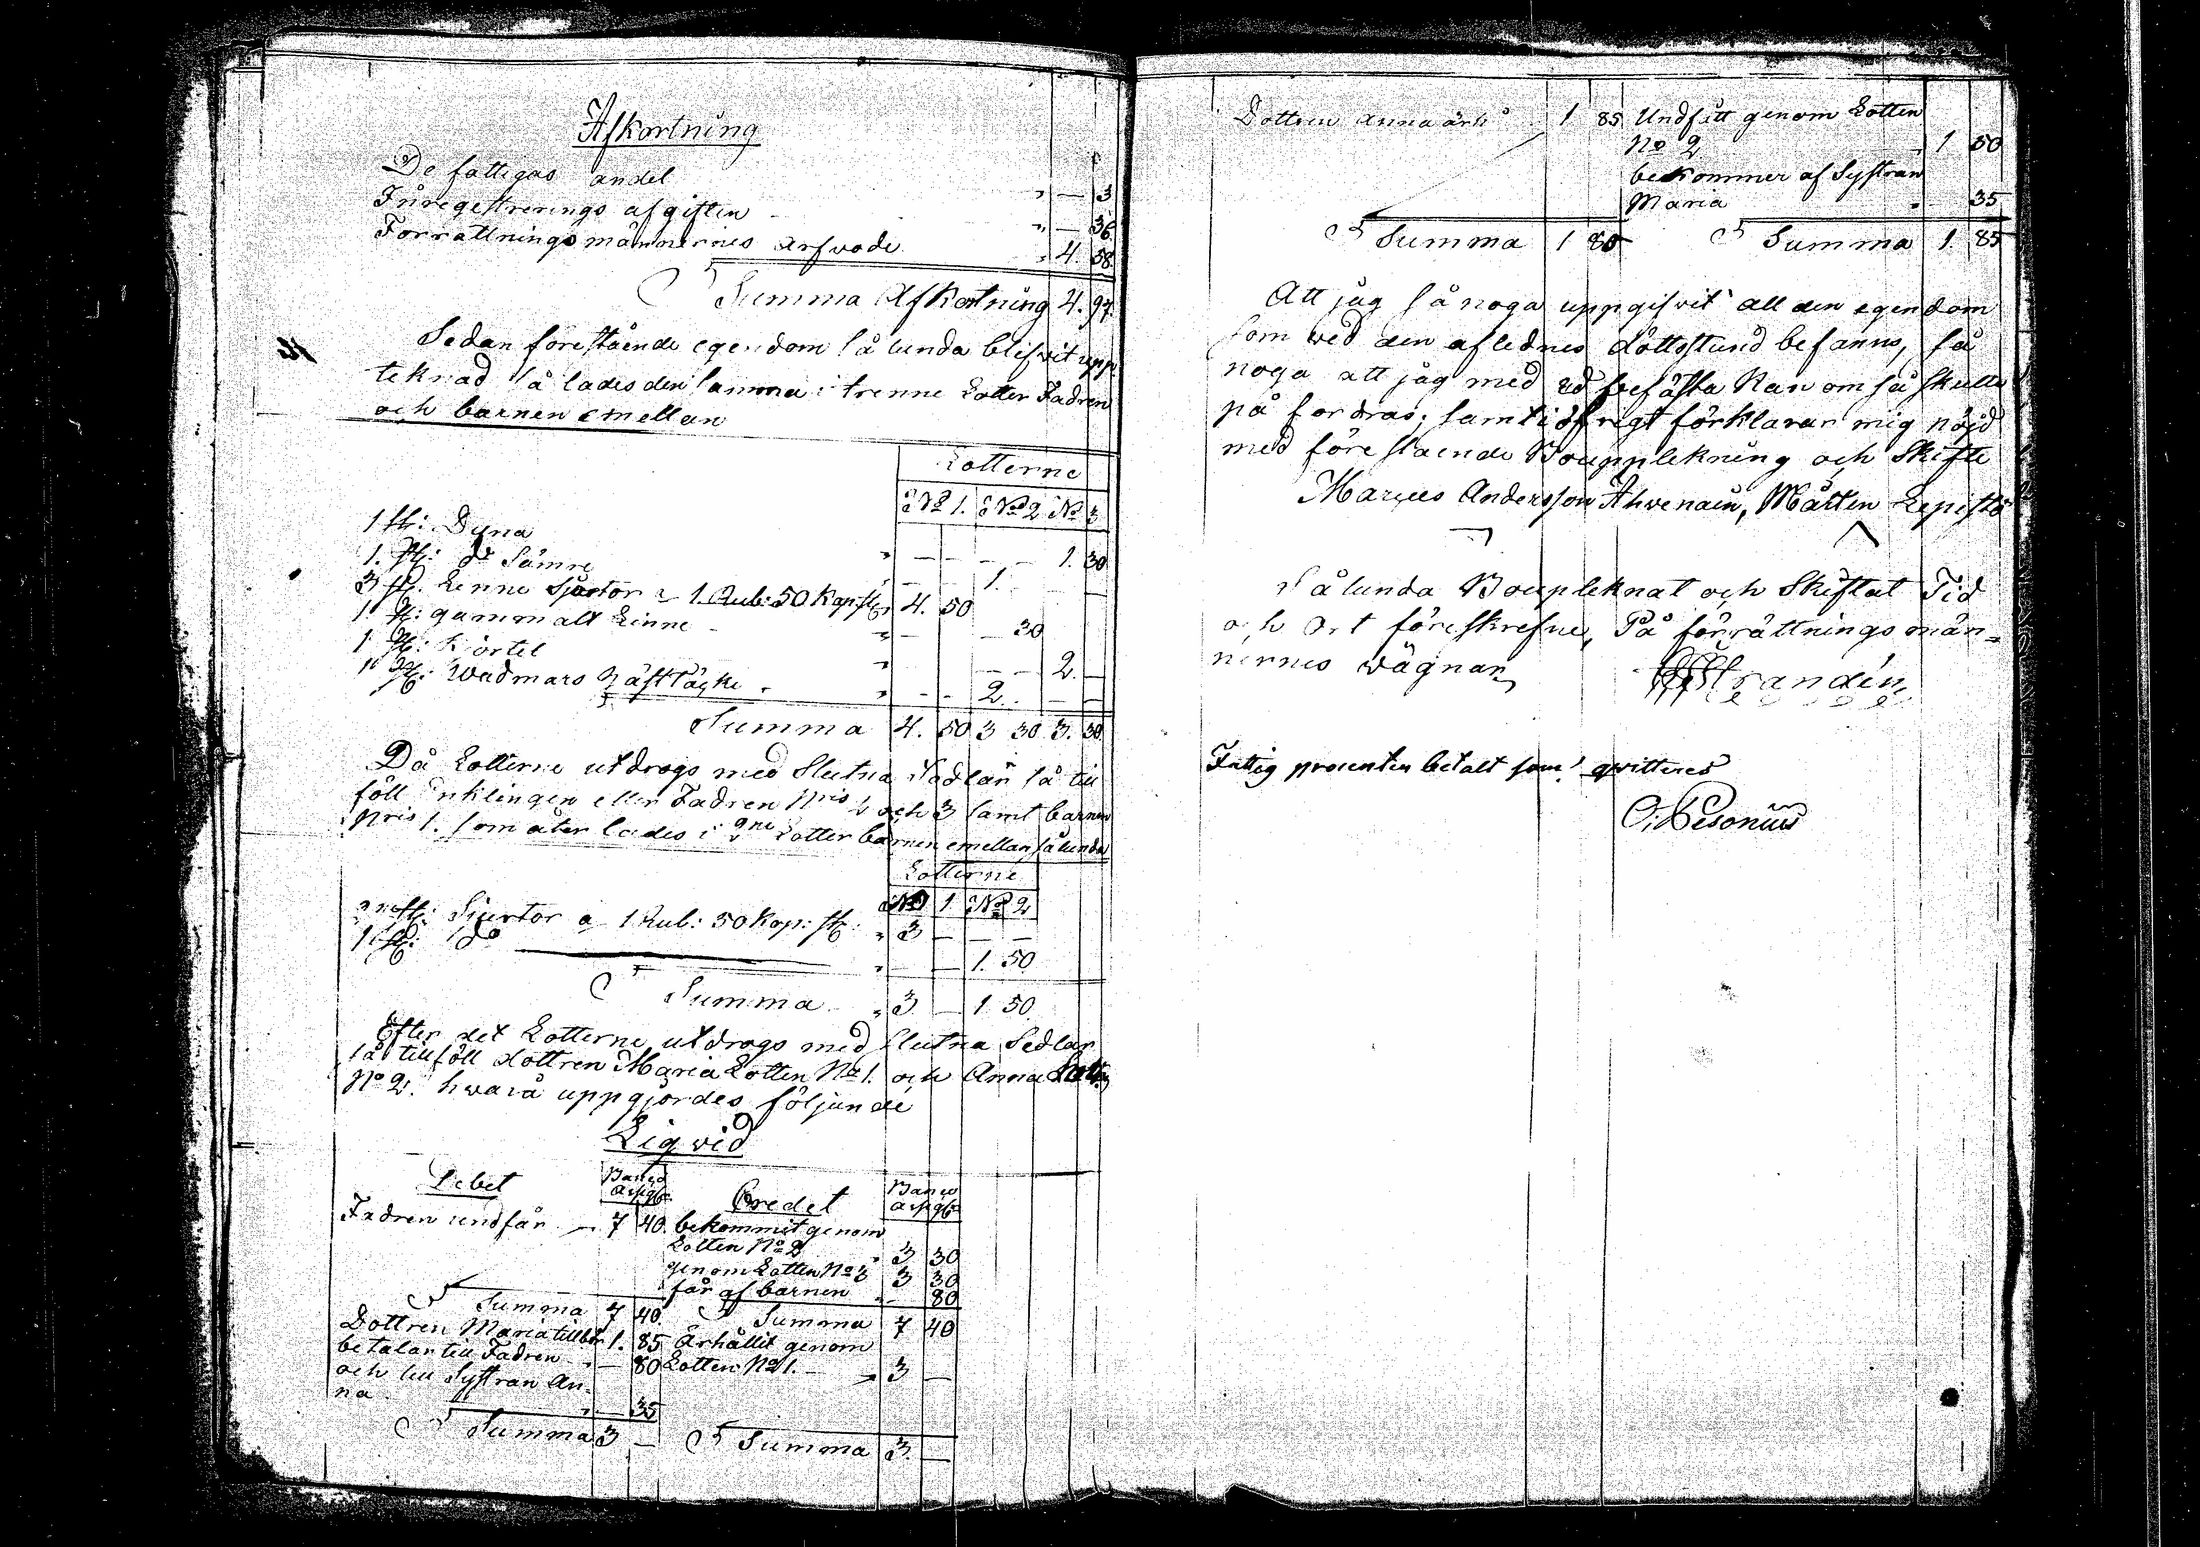 Afkortning
De fattigas andel " — 3
Inregestrerings afgiften " — 36
Förrattningsmännernes arfwode " 4. 58.
Summa Afkortning 4. 97.
Sedan förestående egendom sålunda blifvit upp-
teknad så lades den samma i trenne Lotter Fadren
och barnen emellan
Lotterne
No 1. No 2 No 3
1 st: Dyna " — — — — 1. 30
1. st: do Sämre — — 1. — — —
3 st. Linne Sjortor a 1. Rub: 50 Kop st 4. 50
1 st: gammalt Linne " — — 30
1 st: Kjörtel " — — 2. —
1 st: Wadmars Hästtäcke " — — 2. — — —
Summa 4. 50 3 30 3. 30.
Då Lotterne utdrogs med Slutna Sedlar så till
föll Enklingen eller Fadren Nris 2 och 3 samt barnen
Nris 1. som åter lades i 2ne Lotter barnen emellan sålunda
Lotterne
No 1 No 2
2ne st: Sjortor a 1 Rub: 50 Kop: st " 3 — — —
1 st: do " — — 1. 50
Summa " 3 — 1. 50.
Efter det Lotterne utdrogs med Slutna Sedlar
så tillföll dottren Maria Lotten No 1. och Anna Lotten
No 2. hwarå uppgjordes följande
Liqvid
Debet Banco Credet Banco
Fadren undfår — 7 40. bekommit genom
Lotten No 2 " 3 30
genom Lotten No 3 3 30
får af barnen — 80
Summa 7 40. Summa 7 40
Dottren Maria tillkr 1. 85 Ärhållit genom
betalar till Fadren — 80 Lotten No 1. — 3 —
och till Systran An-
na " — 35
Summa 3 — Summa 3. —
Dottren Anna ärh 1 85 Undfått genom Lotten
No 2 " 1 50
bekommer af Systran
Maria " 35
Summa 1 85 Summa 1. 85
Att jag så noga uppgifvit all den egendom
som wed den aflednes döttsstund befanns, så
noga att jag med ed befästa Kan om så skulle
på fordras; samt i öfrigt förklarar mig nöjd
med förestaende Bouppteknिng och Skifte
Marcus Andersson Ahvenain, Mårten Lepistö
Sålunda Boupteknat och Skiftat Tid
och Ort föreskrefne, På förrättningsmän-
nernes wägnar
Strandén
Fattig procenten betalt som qvitteres